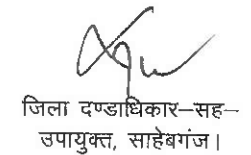 जिला दण्डाधिकार–सह–
उपायुक्त, साहेबगंज।